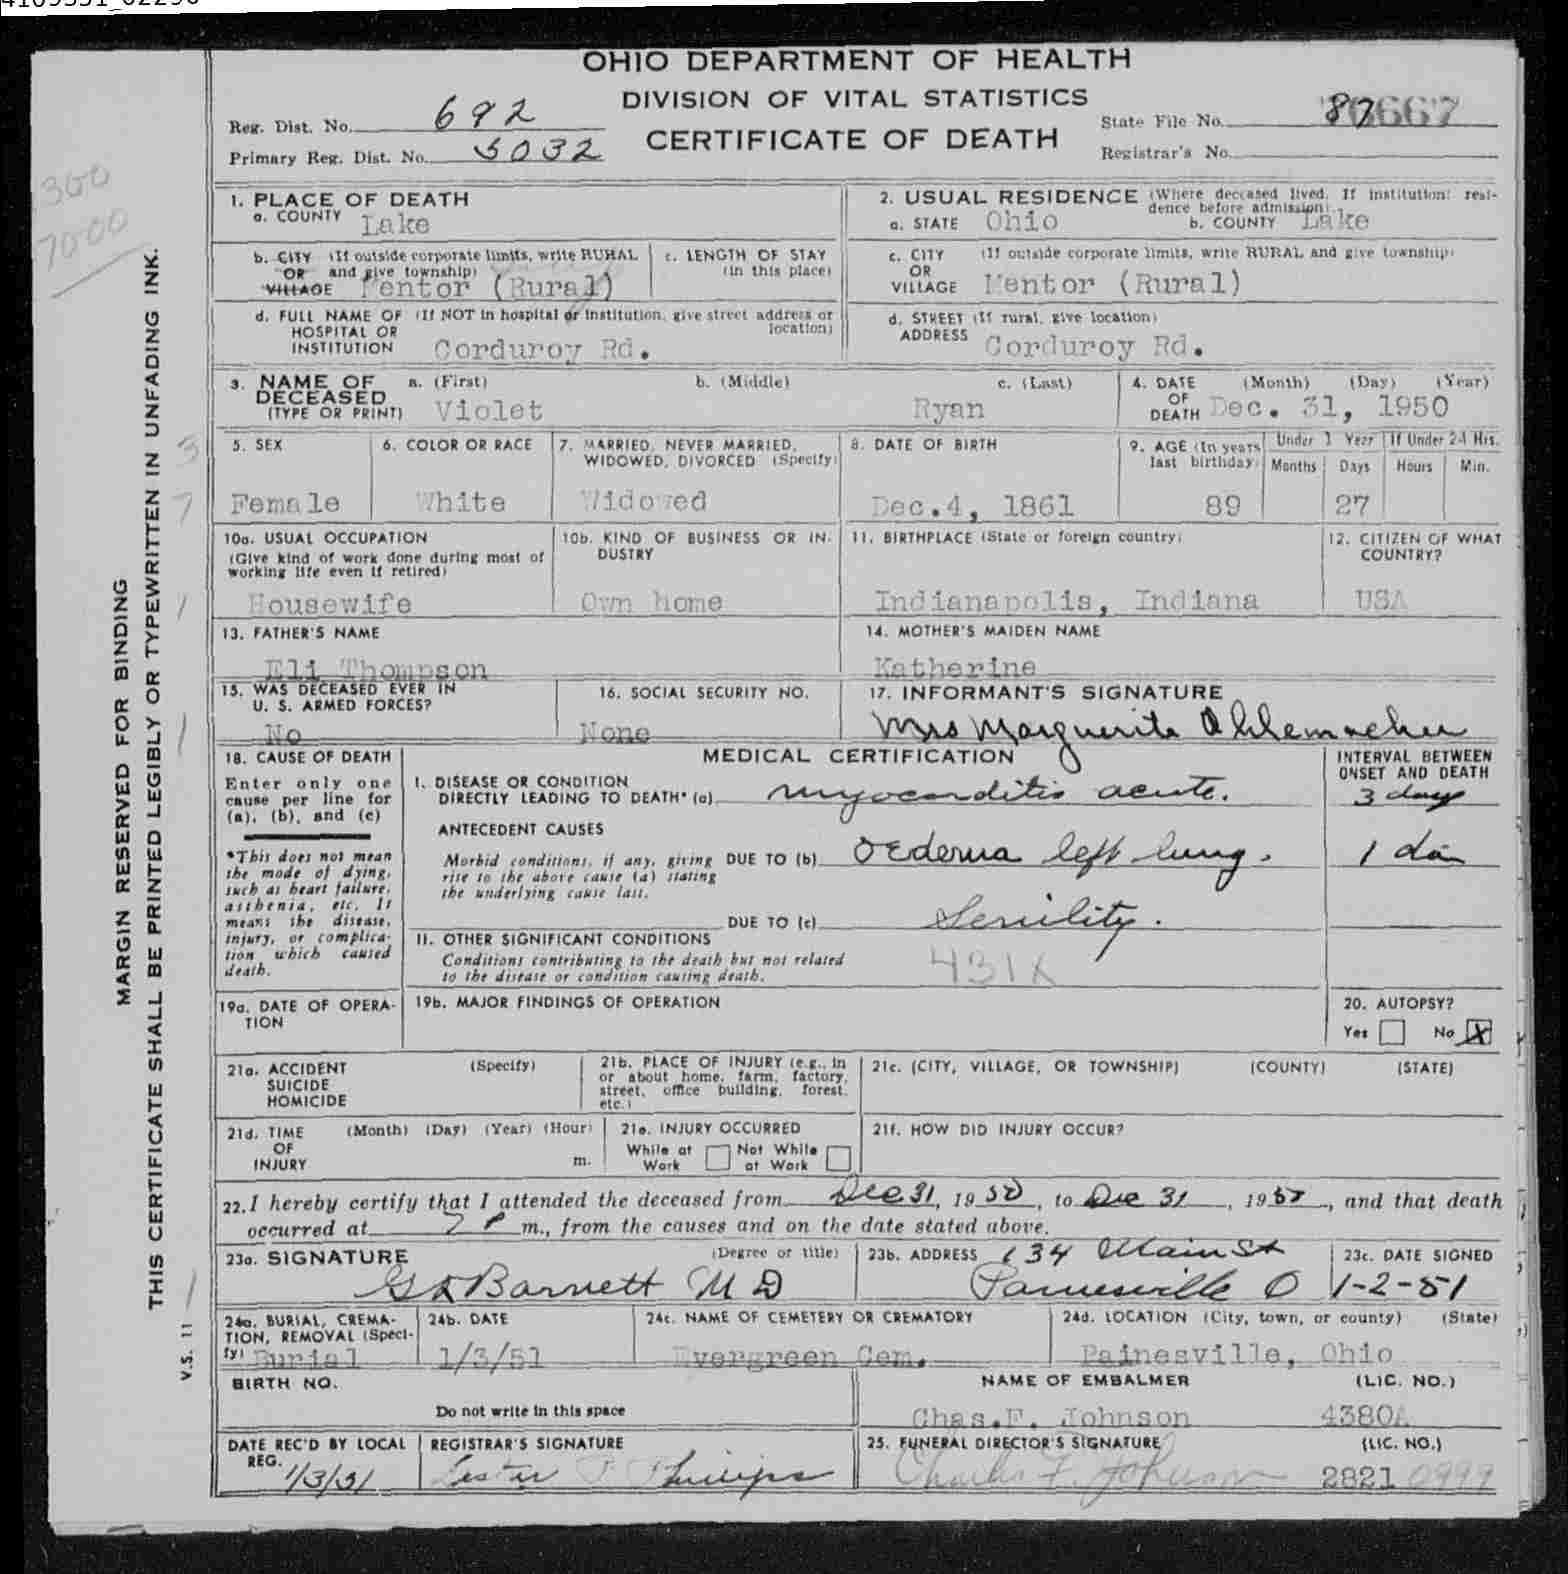 OHIO DEPARTMENT OF HEALTH
DIVISION OF VITAL STATISTICS
CERTIFICATE OF DEATH
Reg. Dist. No. 692
Primary Reg. Dist. No. 5032
State File No.
Registrar's No.
1. PLACE OF DEATH
a. COUNTY Lake
b. CITY (If outside corporate limits, write RURAL
OR and give township)
VILLAGE Mentor (Rural)
c. LENGTH OF STAY
(in this place)
d. FULL NAME OF (If NOT in hospital or institution, give street address or
HOSPITAL OR location)
INSTITUTION Corduroy Rd.
2. USUAL RESIDENCE (Where deceased lived. If institution: resi-
dence before admission).
a. STATE Ohio b. COUNTY Lake
c. CITY (If outside corporate limits, write RURAL and give township)
OR
VILLAGE Mentor (Rural)
d. STREET (If rural, give location)
ADDRESS Corduroy Rd.
3. NAME OF a. (First) b. (Middle) c. (Last)
DECEASED
(TYPE OR PRINT) Violet Ryan
4. DATE (Month) (Day) (Year)
OF
DEATH Dec. 31, 1950
5. SEX
Female
6. COLOR OR RACE
White
7. MARRIED, NEVER MARRIED,
WIDOWED, DIVORCED (Specify)
Widowed
8. DATE OF BIRTH
Dec.4, 1861
9. AGE (In years
last birthday)
89
Under 1 Year
Months Days
27
If Under 24 Hrs.
Hours Min.
10a. USUAL OCCUPATION
(Give kind of work done during most of
working life even if retired)
Housewife
10b. KIND OF BUSINESS OR IN-
DUSTRY
Own home
11. BIRTHPLACE (State or foreign country)
Indianapolis, Indiana
12. CITIZEN OF WHAT
COUNTRY?
USA
13. FATHER'S NAME
Eli Thompson
14. MOTHER'S MAIDEN NAME
Katherine
15. WAS DECEASED EVER IN
U. S. ARMED FORCES?
No
16. SOCIAL SECURITY NO.
None
17. INFORMANT'S SIGNATURE
Mrs Marguerite
18. CAUSE OF DEATH
Enter only one
cause per line for
(a), (b), and (c)
*This does not mean
the mode of dying,
such as heart failure,
asthenia, etc. It
means the disease,
injury, or complica-
tion which caused
death.
MEDICAL CERTIFICATION
I. DISEASE OR CONDITION
DIRECTLY LEADING TO DEATH* (a) myocarditis acute.
ANTECEDENT CAUSES
Morbid conditions, if any, giving DUE TO (b) Oedema left lung.
rise to the above cause (a) stating
the underlying cause last.
DUE TO (c) Senility.
II. OTHER SIGNIFICANT CONDITIONS
Conditions contributing to the death but not related
to the disease or condition causing death.
431X
INTERVAL BETWEEN
ONSET AND DEATH
3 days
1 da
19a. DATE OF OPERA-
TION
19b. MAJOR FINDINGS OF OPERATION
20. AUTOPSY?
Yes No X
21a. ACCIDENT (Specify)
SUICIDE
HOMICIDE
21b. PLACE OF INJURY (e.g., in
or about home, farm, factory,
street, office building, forest,
etc.)
21c. (CITY, VILLAGE, OR TOWNSHIP) (COUNTY) (STATE)
21d. TIME (Month) (Day) (Year) (Hour)
OF
INJURY m.
21e. INJURY OCCURRED
While at Not While
Work at Work
21f. HOW DID INJURY OCCUR?
22. I hereby certify that I attended the deceased from Dec 31, 1950, to Dec 31, 1950, and that death
occurred at 7 P m., from the causes and on the date stated above.
23a. SIGNATURE (Degree or title)
Barnett M D
23b. ADDRESS 134 Main St
Painesville O
23c. DATE SIGNED
1-2-51
24a. BURIAL, CREMA-
TION, REMOVAL (Speci-
fy) Burial
24b. DATE
1/3/51
24c. NAME OF CEMETERY OR CREMATORY
Evergreen Cem.
24d. LOCATION (City, town, or county) (State)
Painesville, Ohio
BIRTH NO.
Do not write in this space
NAME OF EMBALMER (LIC. NO.)
Chas.F. Johnson 4380A
DATE REC'D BY LOCAL
REG. 1/3/51
REGISTRAR'S SIGNATURE
Lester P Phillips
25. FUNERAL DIRECTOR'S SIGNATURE (LIC. NO.)
Charles F. Johnson 2821 0999
MARGIN RESERVED FOR BINDING
THIS CERTIFICATE SHALL BE PRINTED LEGIBLY OR TYPEWRITTEN IN UNFADING INK.
V.S. 11
300
7000
3
7
1
1
1